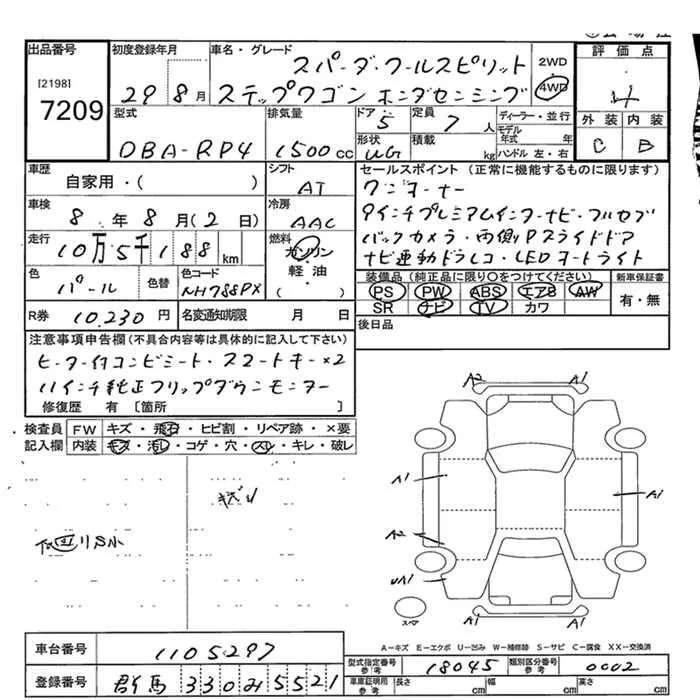 出品番号
[2198]
7209
初度登録年月
29 8月
車名・グレード
スパーダ・クールスピリット
ステップワゴン ホンダセンシング
2WD
4WD
評価点
4
外装 内装
C B
型式
DBA-RP4
排気量
1500cc
ドア 5
形状 UG
定員 7人
積載 kg
ディーラー・並行
モデル年式 年
ハンドル 左・右
車歴
自家用・( )
シフト
AT
セールスポイント(正常に機能するものに限ります)
ワンオーナー
9インチプレミアムインターナビ・フルセグ
バックカメラ・両側Pスライドドア
ナビ連動ドラレコ・LEDヘッドライト
車検
8年8月(2日)
冷房
AAC
走行
10万5千188km
燃料
ガソリン
軽油
( )
色
パール
色替
色コード
NH788PX
装備品(純正品に限り○をつけてください)
PS PW ABS エアB AW
SR ナビ TV カワ
新車保証書
有・無
R券 10.230円
名変通知期限 月 日
後日品
注意事項申告欄(不具合内容等は具体的に記入して下さい)
ヒーター付コンビシート・スマートキー×2
11インチ純正フリップダウンモニター
修復歴 有 〔箇所 〕
検査員記入欄
FW キズ・飛石・ヒビ割・リペア跡・×要
内装 キズ・汚レ・コゲ・穴・スレ・キレ・破レ
A2 A1
A1
A1
A2
UA1
A1 A1
スペア
A-キズ E-エクボ U-凹み W-補修跡 S-サビ C-腐食 XX-交換済
車台番号
1105297
登録番号
群馬 330み5521
型式指定番号 参考
18045
類別区分番号 参考
0002
車庫証明用 参考
長さ cm
幅 cm
高さ cm